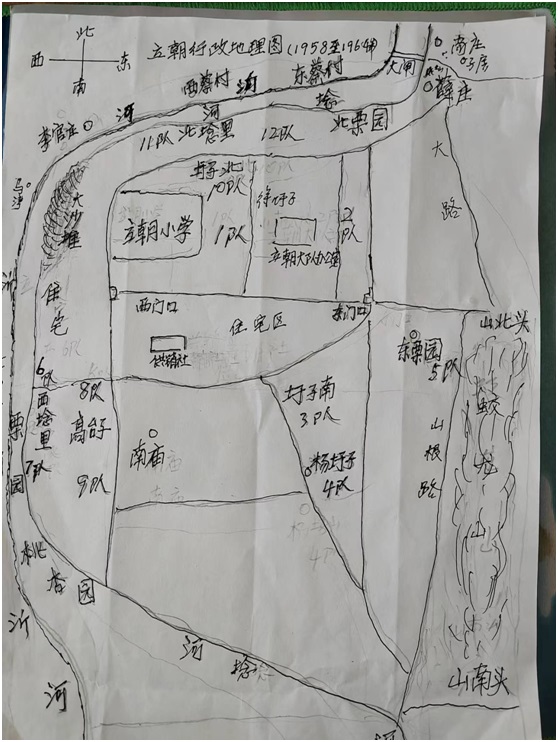 北
西 东
南
立朝行政地理图(1958至1964年)
西蔡村
东蔡村
大闸
高庄
薛庄
河
河
埝
李官庄
11队
北埝里
12队
北栗园
大路
圩子北
10队
徐圩子
大沙堆
立朝小学
1队
2队
住宅
西门口
东门口
住宅区
供销社
山北头
东栗园
5队
6队
西埝里
7队
8队
高台子
9队
圩子南
3队
南庙
杨圩子
4队
山根路
栗园
桃杏园
沂河
河埝
山南头
河